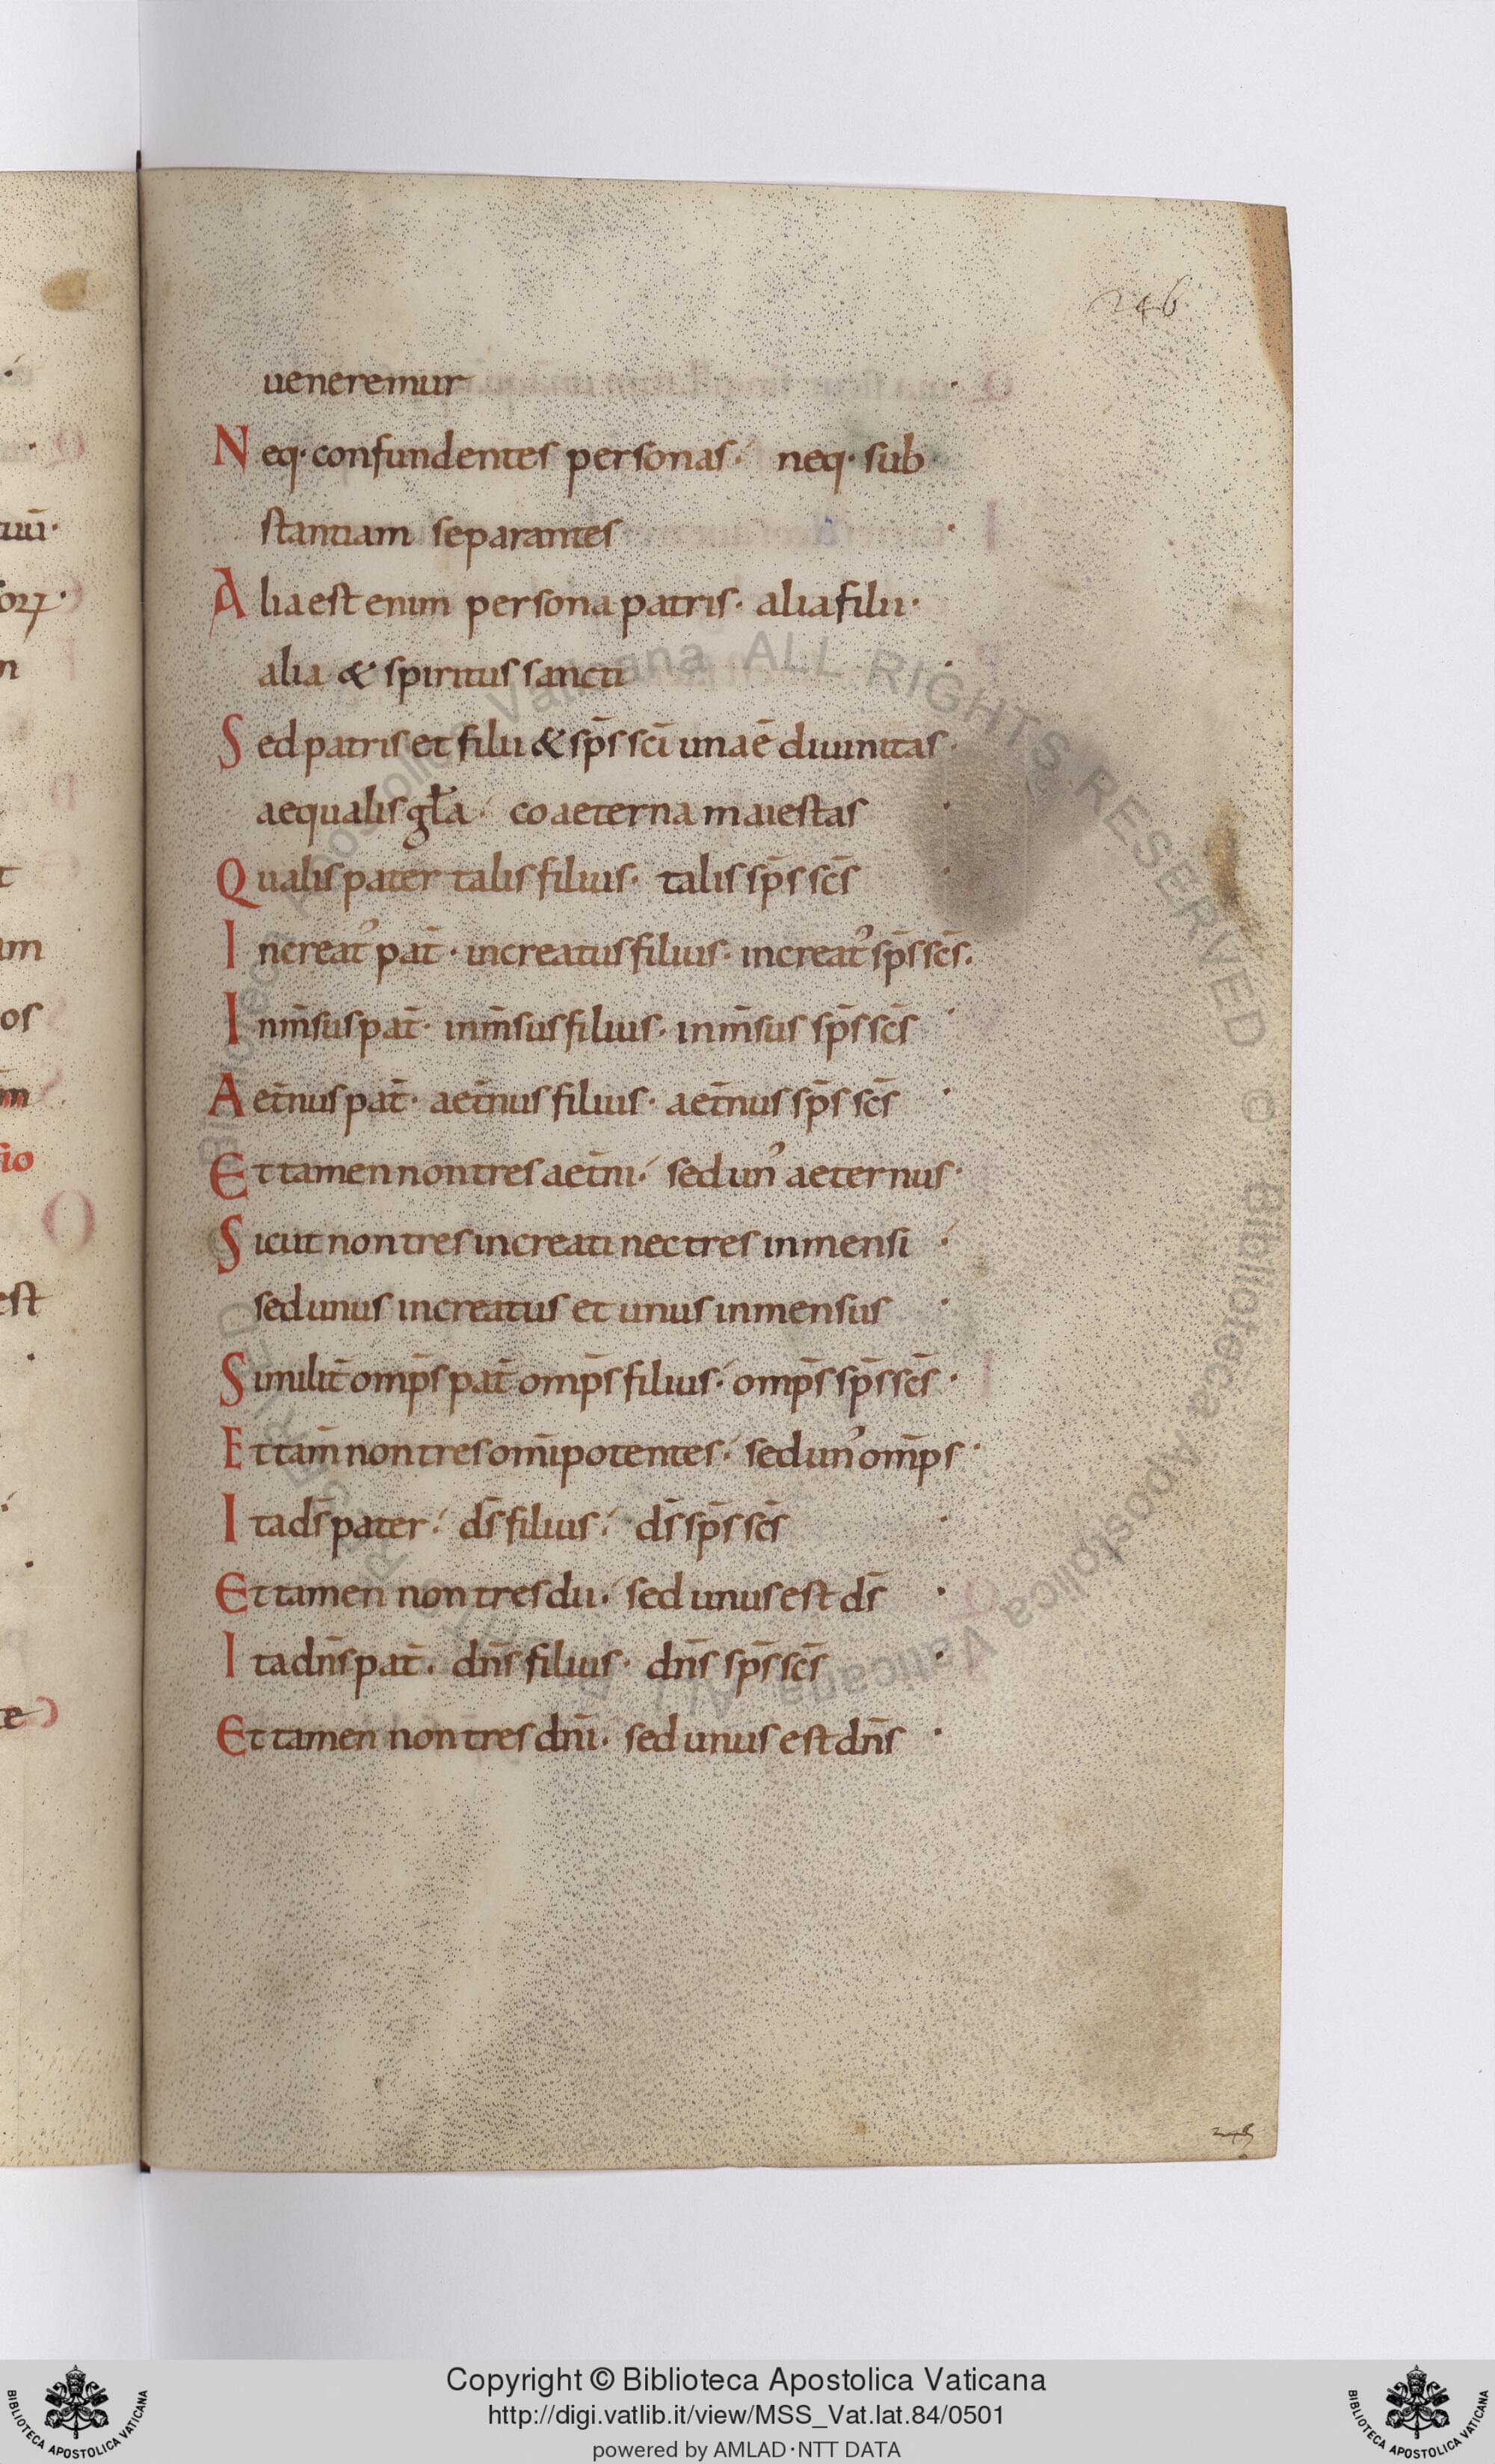 246
ueneremur ·
Neq· confundentes personas ·́ neq· sub
stantiam separantes ·
Alia est enim persona patris · alia filii ·
alia & spiritus sancti ·
Sed patris et filii & sp̄s sc̄i una ē diuinitas ·
aequalis gl̄a ·́ coaeterna maiestas ·
Qualis pater talis filius · talis sp̄s sc̄s ·
Increatʾ pat̄ · increatus filius · increatʾ sp̄s sc̄s.
Inm̄sus pat̄ · inm̄sus filius · inm̄sus sp̄s sc̄s ·
Aet̄nus pat̄ · aet̄nus filius · aet̄nus sp̄s sc̄s ·
Et tamen non tres aet̄ni ·́ sed unʾ aeternus ·
Sicut non tres increati nec tres inmensi ·́
sed unus increatus et unus inmensus ·
Similit̄ omp̄s pat̄ omp̄s filius ·́ omp̄s sp̄s sc̄s ·
Et tam̄ non tres om̄ipotentes ·́ sed unʾ om̄ps ·
Ita ds̄ pater ·́ ds̄ filius ·́ ds̄ sp̄s sc̄s ·
Et tamen non tres dii ·́ sed unus est ds̄ ·
Ita dn̄s pat̄ · dn̄s filius · dn̄s sp̄s sc̄s ·
Et tamen non tres dn̄i · sed unus est dn̄s ·
Biblioteca Apostolica Vaticana ALL RIGHTS RESERVED ©
Copyright © Biblioteca Apostolica Vaticana
http://digi.vatlib.it/view/MSS_Vat.lat.84/0501
powered by AMLAD·NTT DATA
BIBLIOTECA APOSTOLICA VATICANA
BIBLIOTECA APOSTOLICA VATICANA